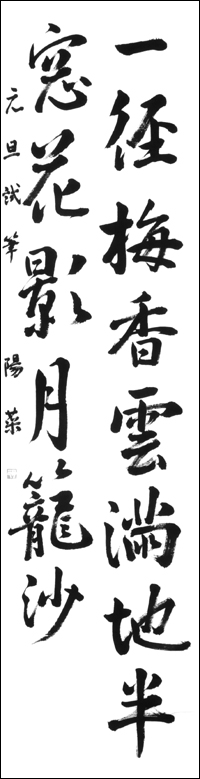 一徑梅香雲満地半
窓花影月籠沙
元旦試筆 陽葉